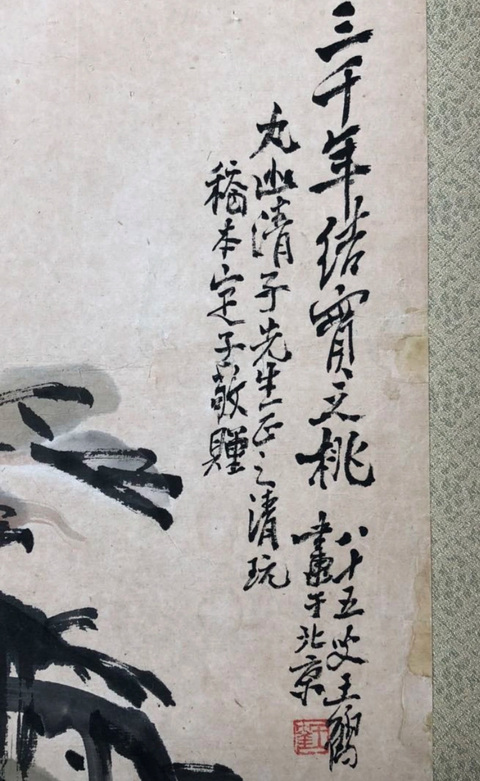 三千年結實之桃
八十五叟王鶴
畫於北京
九幽清子先生正之清玩
稿本定子敬贈